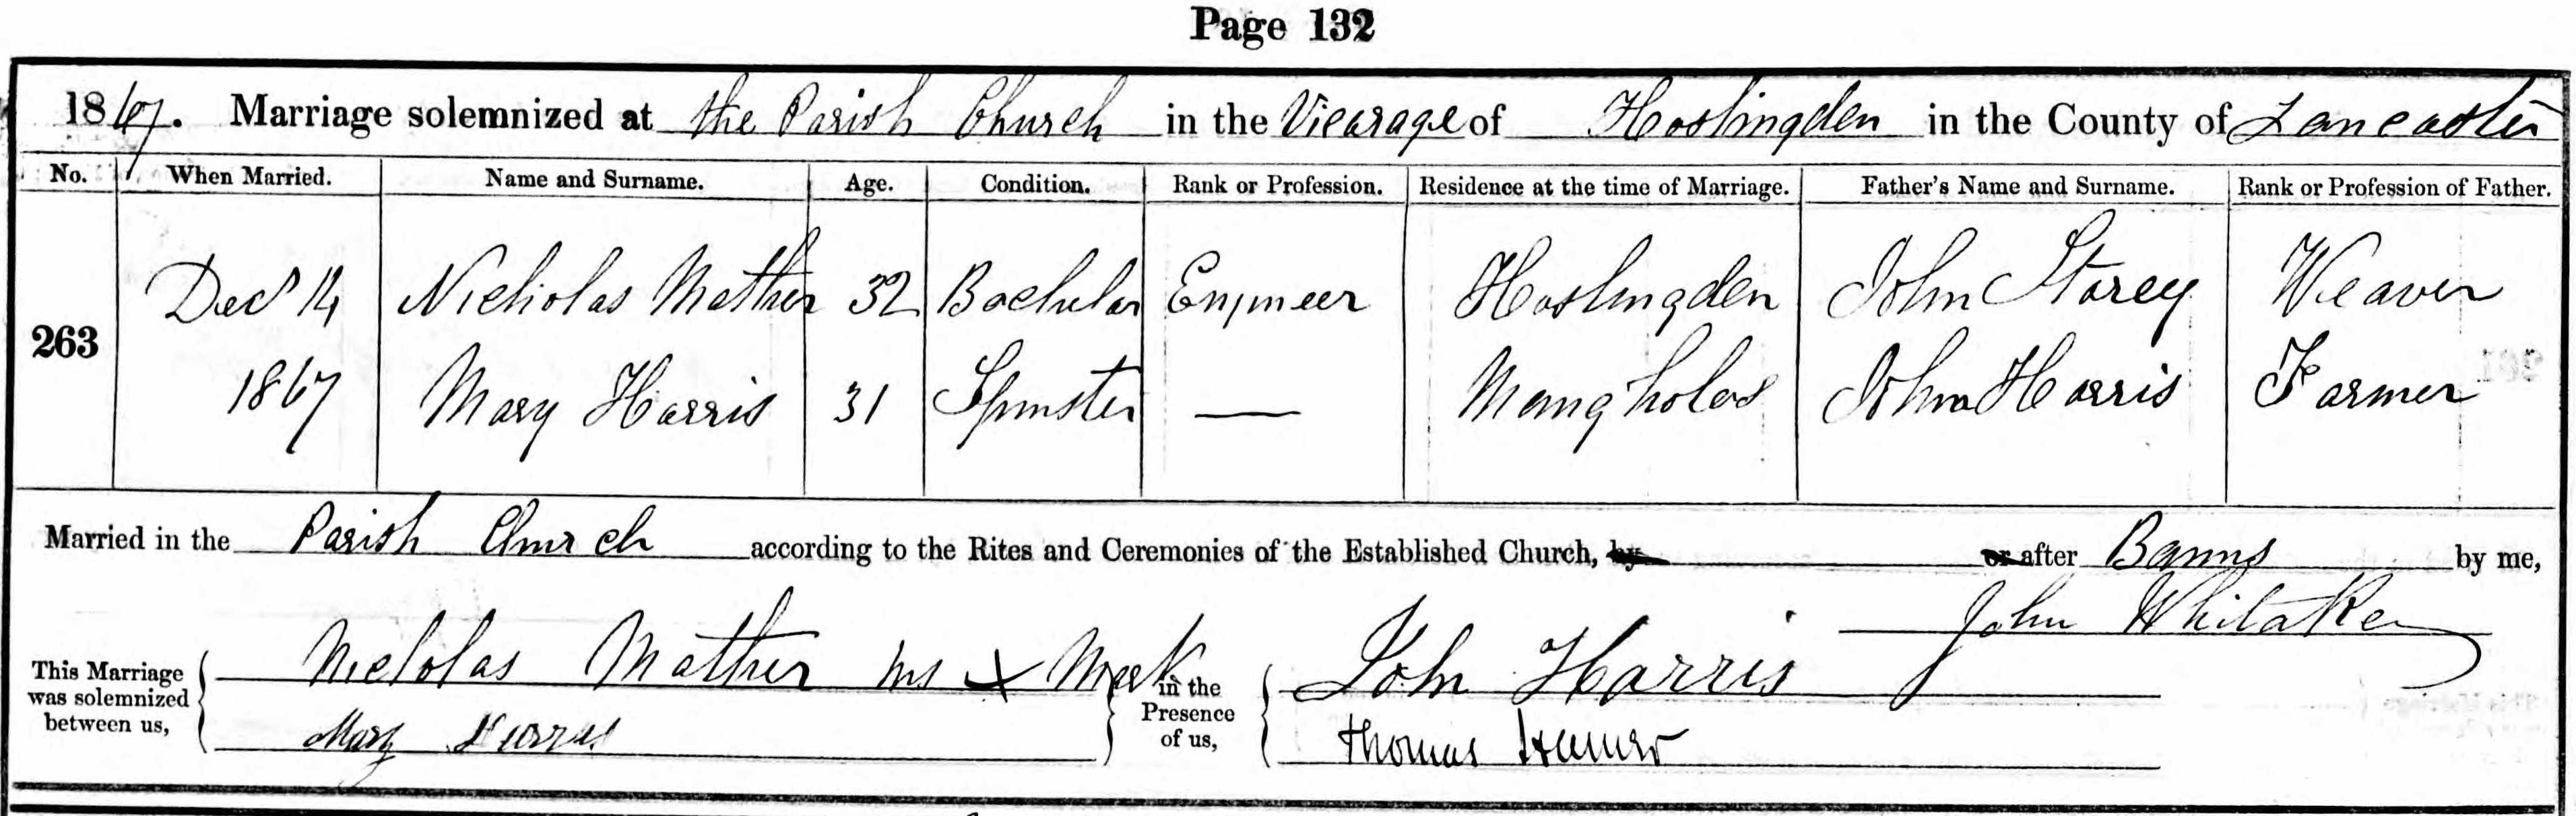 Page 132
1867. Marriage solemnized at the Parish Church in the Vicarage of Haslingden in the County of Lancaster
No. When Married. Name and Surname. Age. Condition. Rank or Profession. Residence at the time of Marriage. Father's Name and Surname. Rank or Profession of Father.
263
Decr 14 Nicholas Mather 32 Bachelor Engineer Haslingden John Storey Weaver
1867 Mary Harris 31 Spinster — Mangholes John Harris Farmer
Married in the Parish Church according to the Rites and Ceremonies of the Established Church, by or after Banns by me,
John Whitaker
This Marriage was solemnized between us, Nicholas Mather his x Mark in the Presence of us, John Harris
Mary Harris Thomas